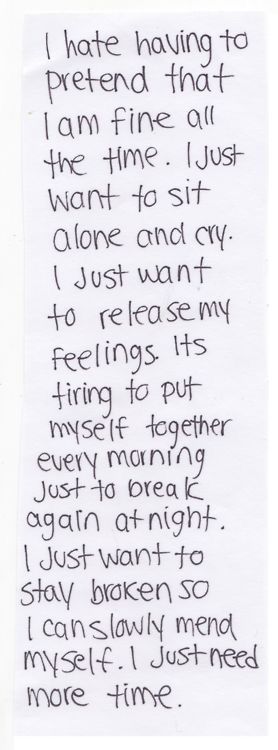 I hate having to
pretend that
I am fine all
the time. I Just
want to sit
alone and cry.
I Just want
to release my
feelings. Its
tiring to put
myself together
every morning
Just to break
again at night.
I Just want to
stay broken so
I can slowly mend
myself. I Just need
more time.